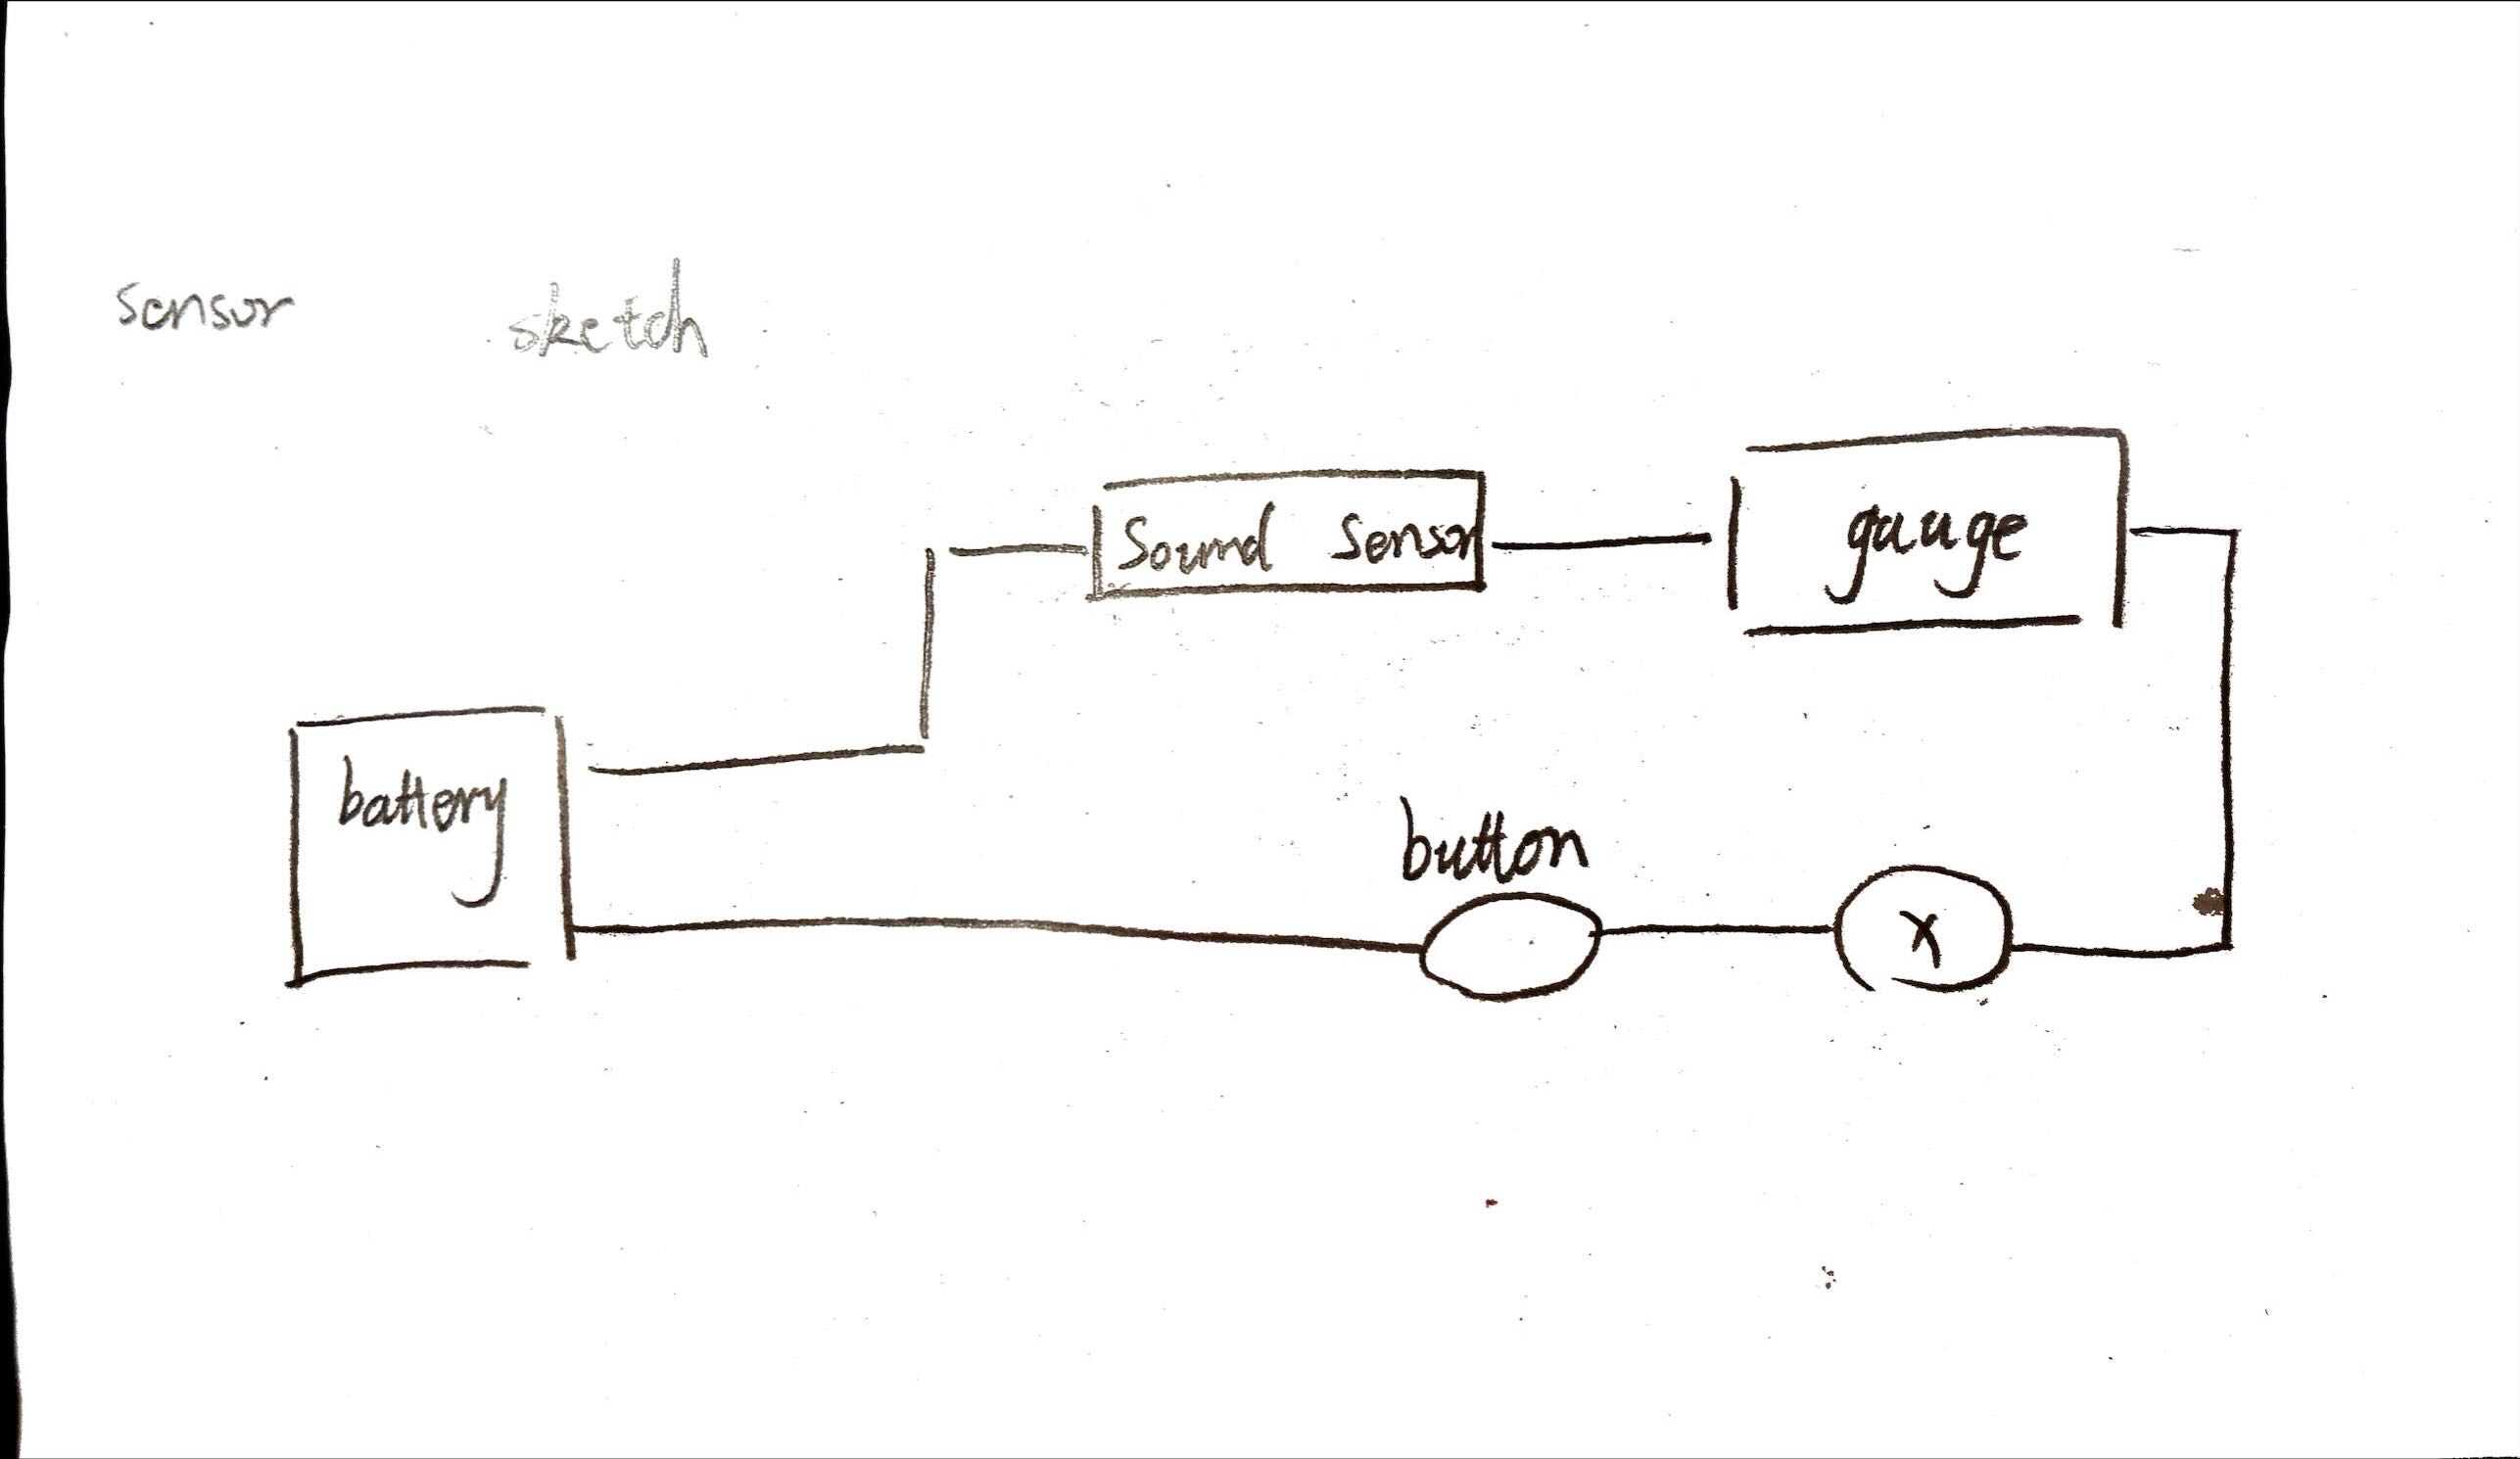 sensor sketch
Sound Sensor
gauge
battery
button
X